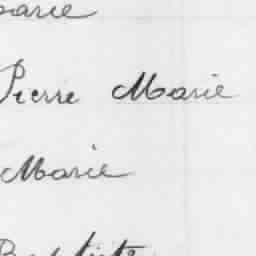 Marie
Pierre Marie
Marie
Baptiste